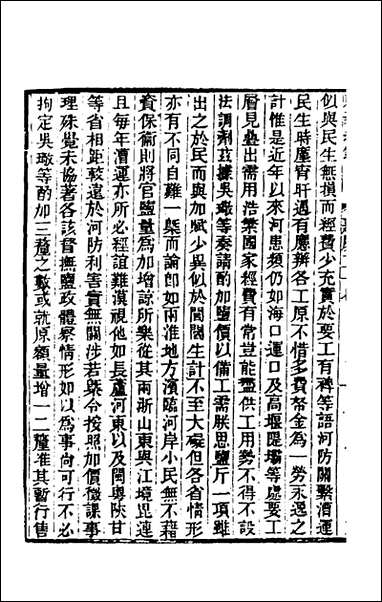 似與民生無損而經費少充實於要工有裨等語河防關繫漕運
民生時廑宵旰過有應辦各工原不惜多費帑金為一勞永逸之
計惟是近年以來河患頻仍如海口運口及高堰隄壩等處要工
層見疊出需用浩繁國家經費有常豈能盡供工用勢不得不設
法調劑茲據吳璥等奏請酌加鹽價以備工需朕思鹽斤一項雖
出之於民而與加賦少異似於閭閻生計不至大礙但各省情形
亦有不同自難一槩而論即如兩淮地方濱臨河岸小民無不藉
資保衞則將官鹽量為加增諒所樂從其兩浙山東與江境毘連
且每年漕運亦所必經誼難漠視他如長蘆河東以及閩粵陝甘
等省相距較遠於河防利害實無關涉若槩令按照加價徵課事
理殊覺未協著各該督撫鹽政體察情形如以為事尚可行不必
拘定吳璥等酌加三釐之數或就原額量增一二釐准其暫行售